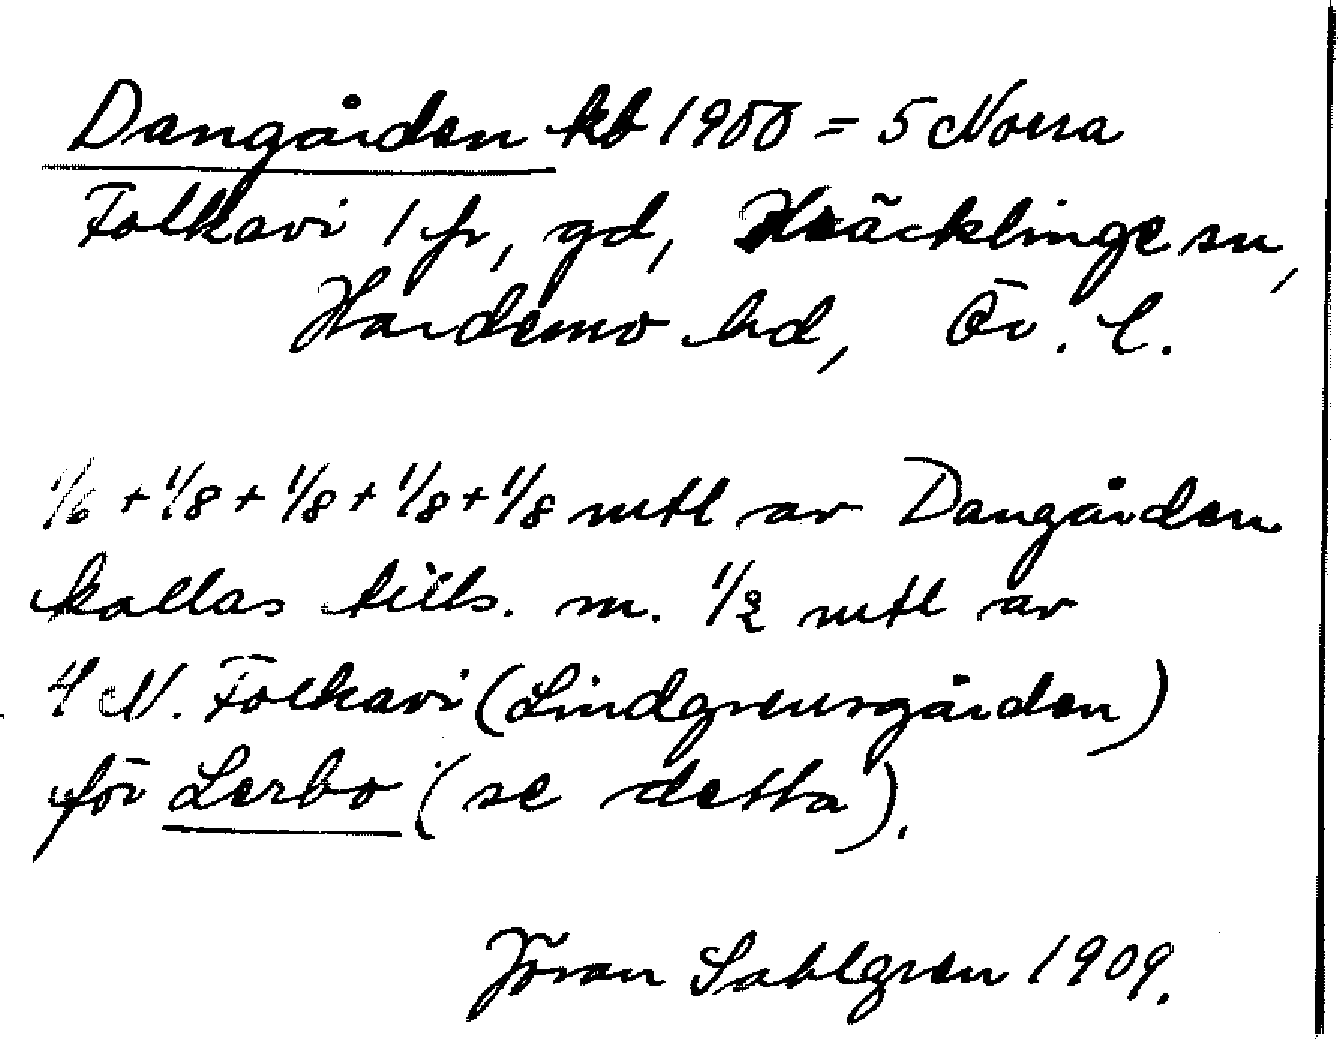 Dangården kb 1900 = 5 Norra
Folkavi 1 fr, gd, Kräcklinge sn,
Hardemo hd, Ör. l.
1/6 + 1/8 + 1/8 + 1/8 + 1/8 mtl av Dangården
kallas tills. m. 1/2 mtl av
4 N. Folkavi (Lindgrensgården)
för Lerbo (se detta).
Jöran Sahlgren 1909.